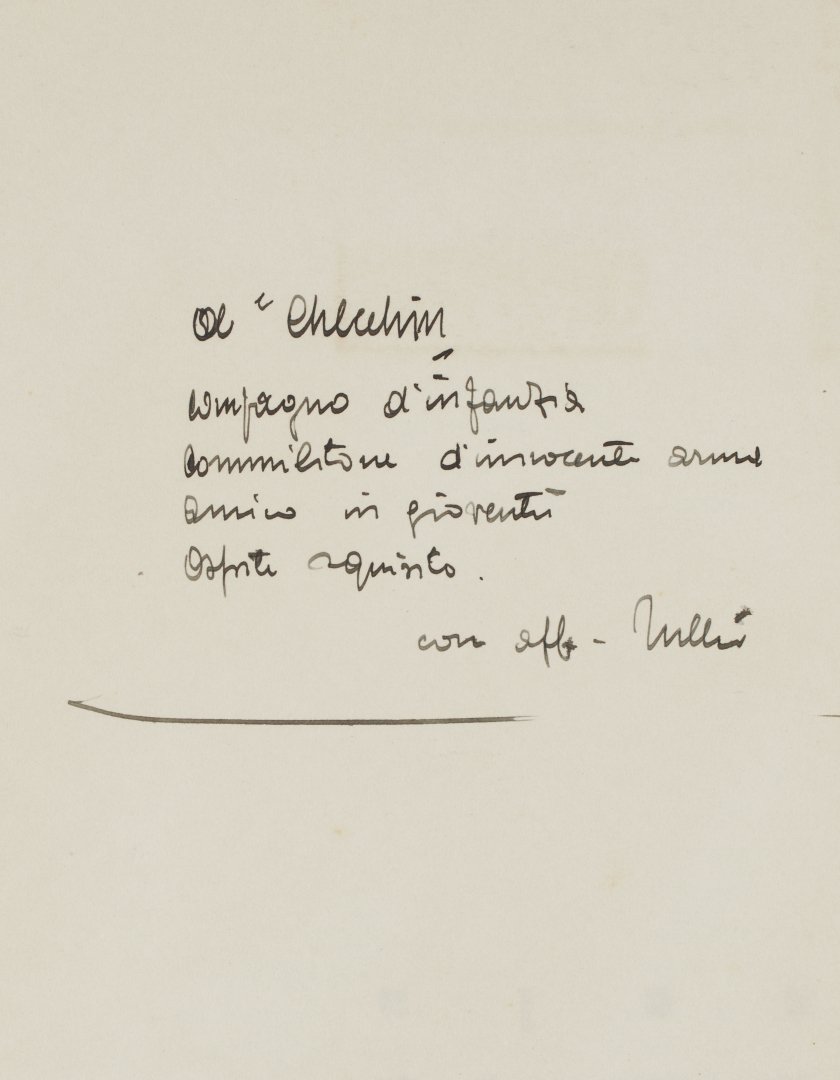 al "Checchin"
compagno d'infanzia
commilitone d'innocente arma
amico in gioventù
Ospite squisito.
con aff-